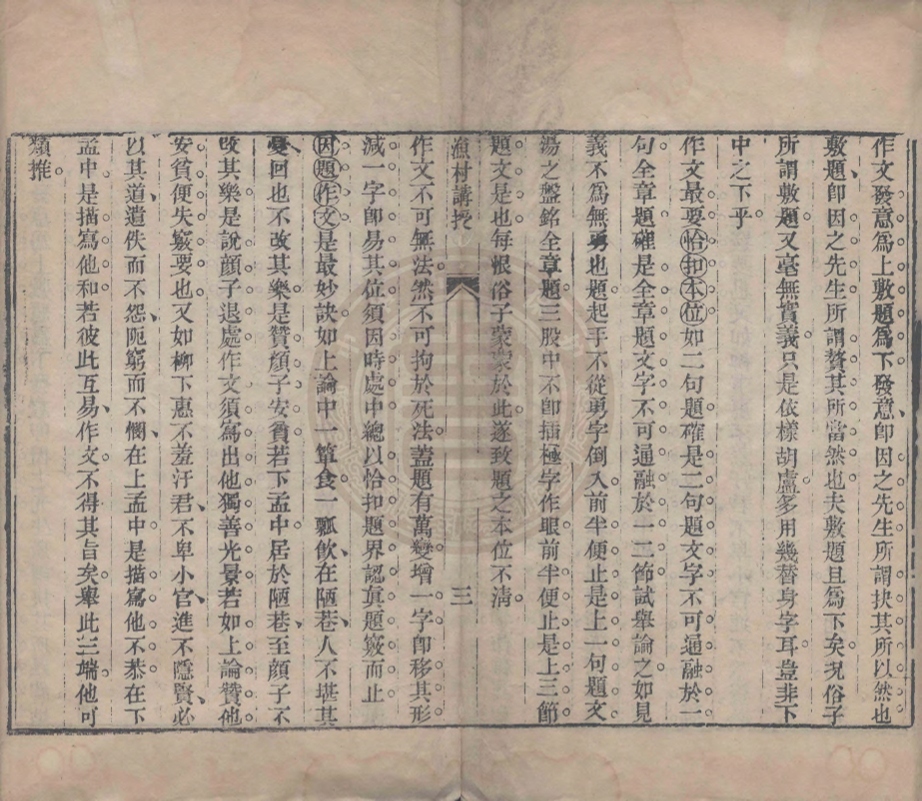 作文發意爲上敷題爲下發意卽因之先生所謂抉其所以然也
敷題卽因之先生所謂贅其所當然也夫敷題且爲下矣况俗子
所謂敷題又毫無實義只是依樣胡盧多用幾替身字耳豈非下
中之下乎
作文最要恰扣本位如二句題確是二句題文字不可通融於一
句全章題確是全章題文字不可通融於一二節試舉論之如見
義不爲無勇也題起手不從勇字倒入前半便止是上一句題文
湯之盤銘全章題三股中不卽插極字作眼前半便止是上三節
題文是也每恨俗子蒙蒙於此遂致題之本位不清
漁村講授 三
作文不可無法然不可拘於死法蓋題有萬變增一字卽移其形
減一字卽易其位須因時處中總以恰扣題界認眞題竅而止
因題作文是最妙訣如上論中一簞食一瓢飲在陋巷人不堪其
憂回也不改其樂是贊顏子安貧若下孟中居於陋巷至顏子不
改其樂是說顏子退處作文須寫出他獨善光景若如上論贊他
安貧便失竅要也又如柳下惠不羞汙君不卑小官進不隱賢必
以其道遺佚而不怨阨窮而不憫在上孟中是描寫他不恭在下
孟中是描寫他和若彼此互易作文不得其旨矣舉此三端他可
類推